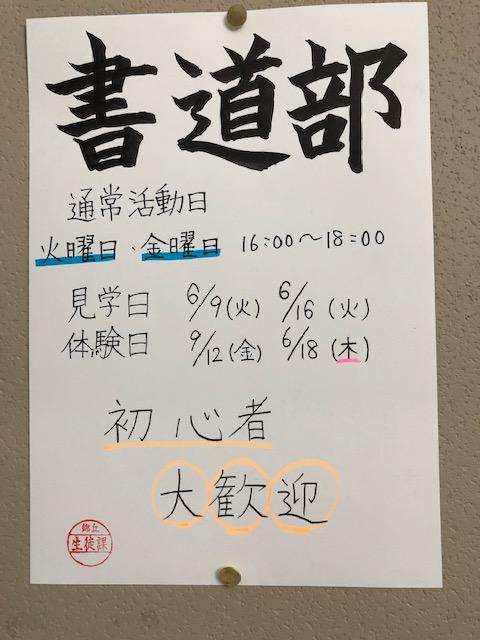 書道部
通常活動日
火曜日・金曜日 16:00～18:00
見学日 6/9(火) 6/16(火)
体験日 9/12(金) 6/18(木)
初心者
大歓迎
錦丘
生徒課